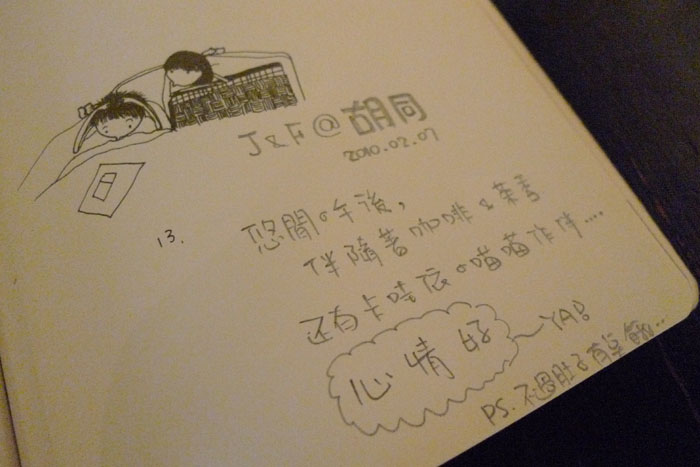 J & F @ 胡同
2010.02.07
13.
悠閒の午後,
伴隨著咖啡 & 茶香
还有卡哇依の喵喵作伴....
心情好
YA!
PS. 不過肚子有点餓...